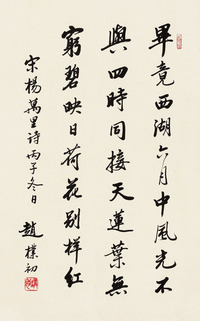 畢竟西湖六月中風光不
與四時同接天蓮葉無
窮碧映日荷花别樣紅
宋楊萬里诗丙子冬日
趙樸初